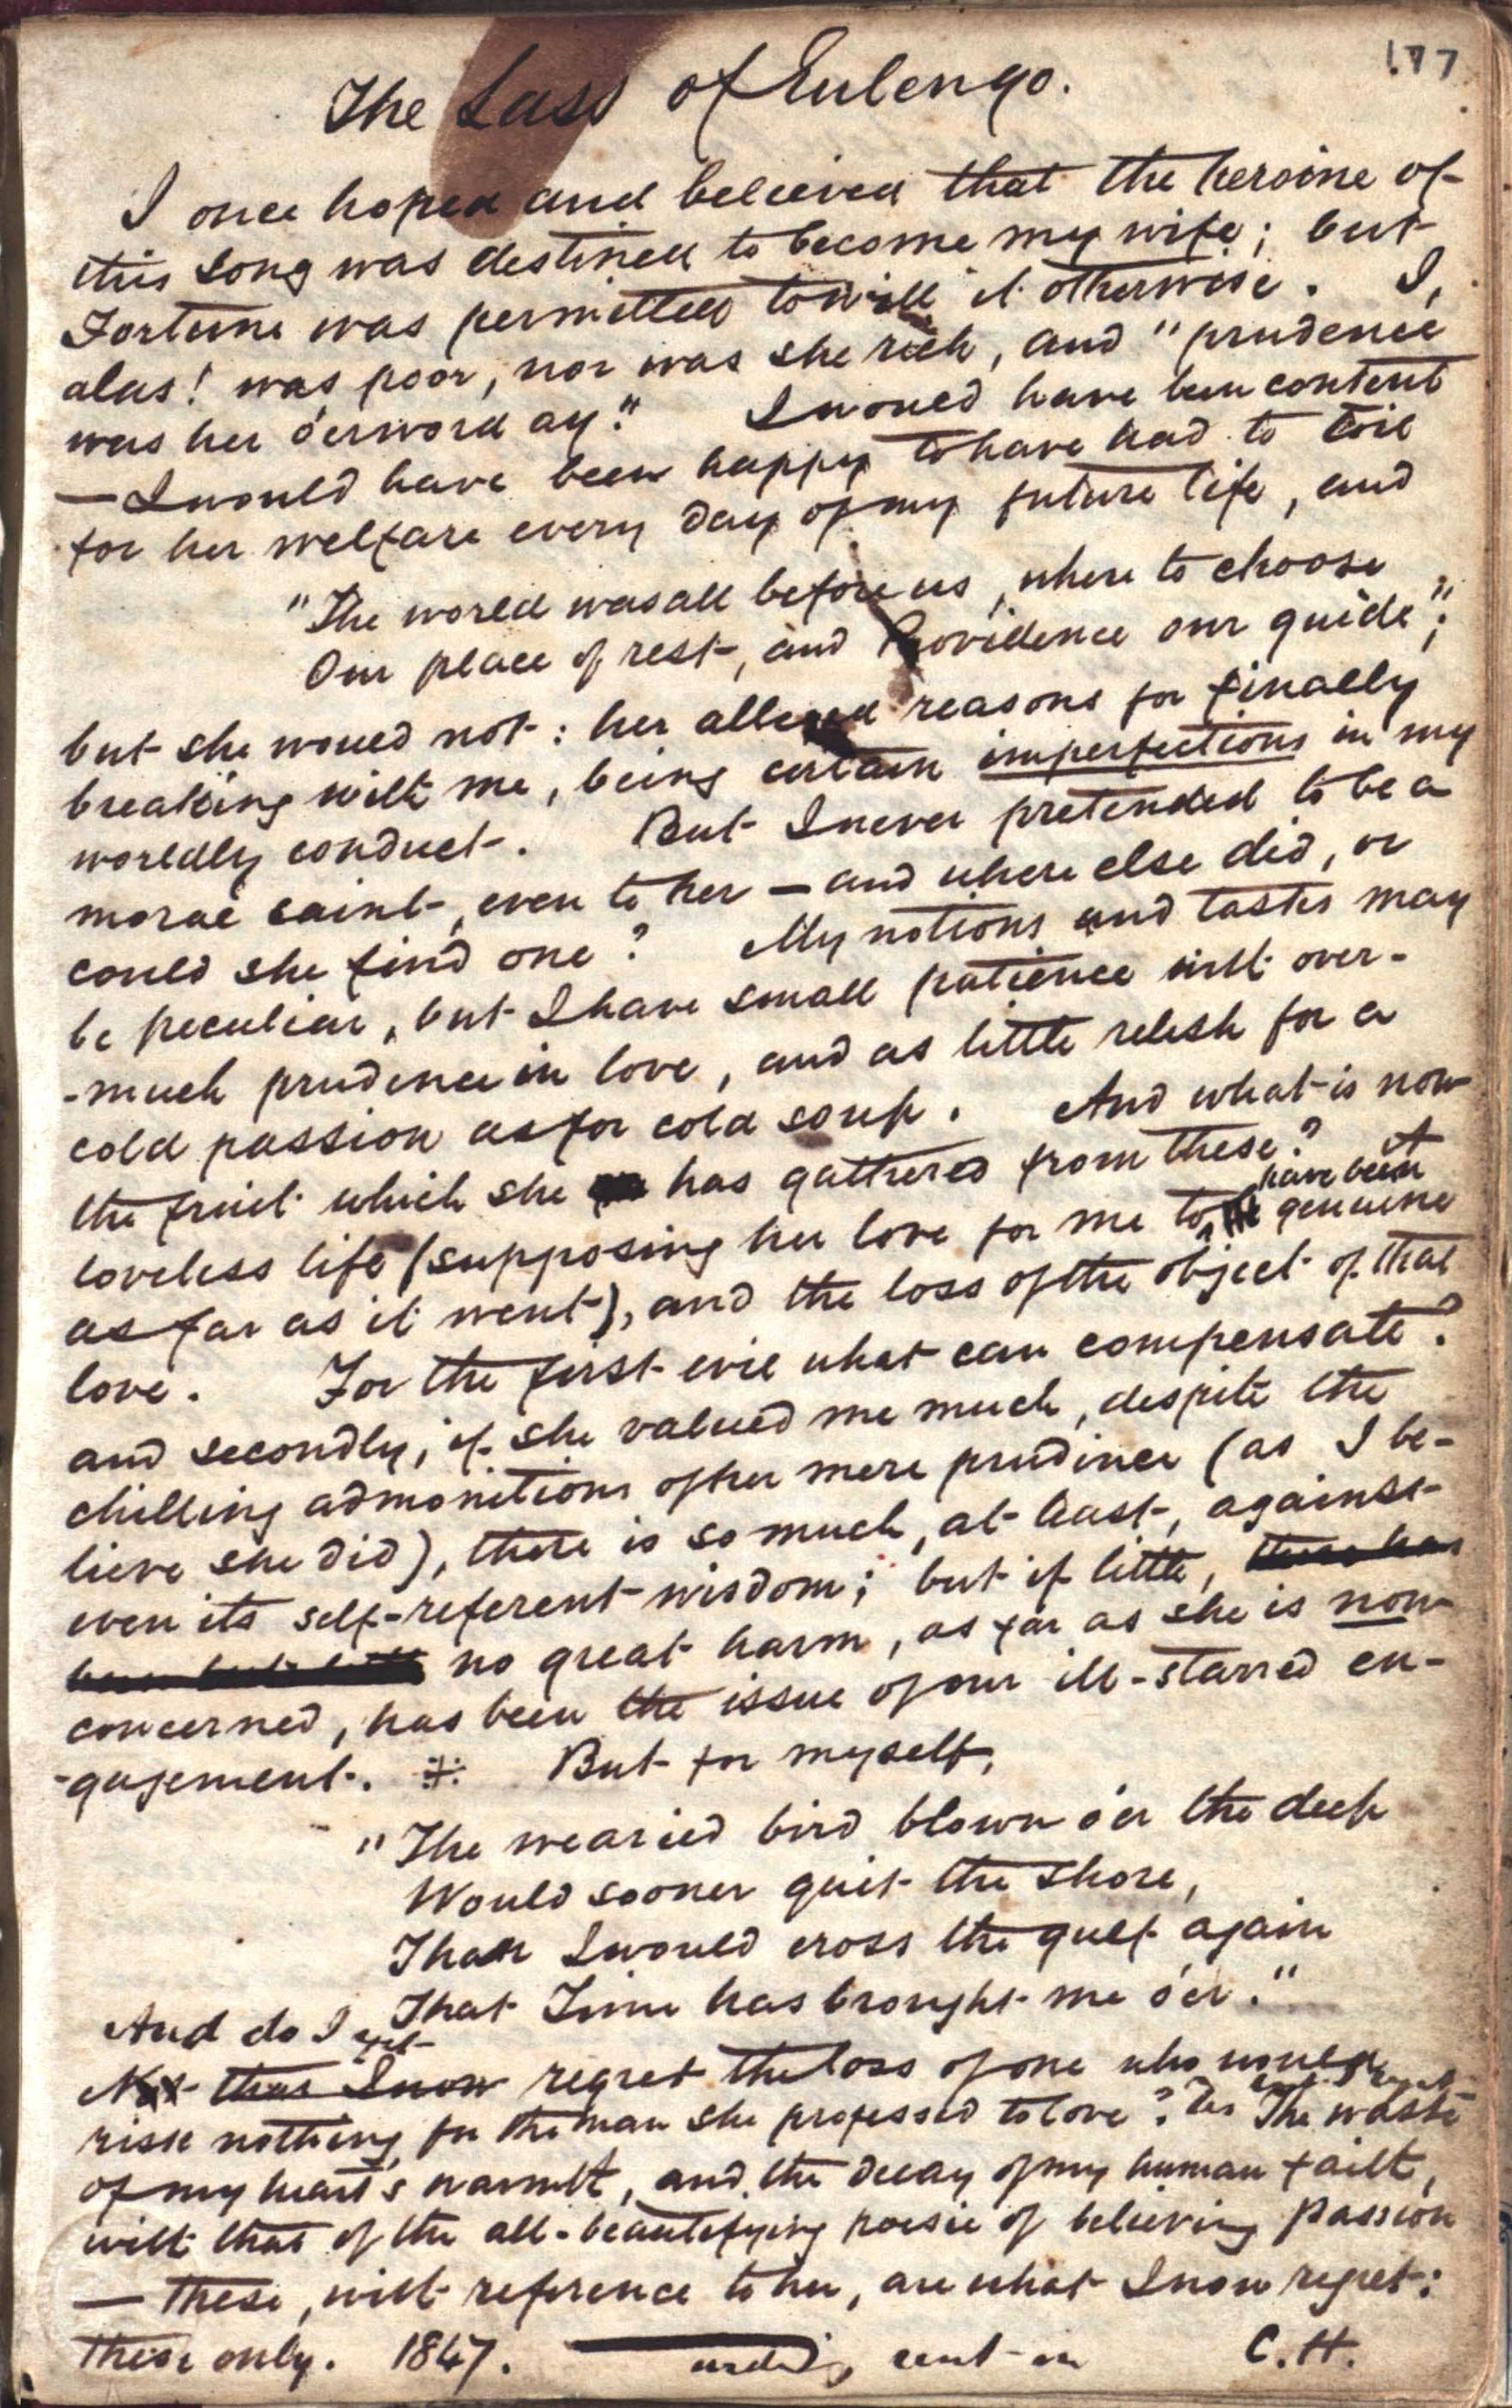 177
The Lass of Eulengo.
I once hoped and believed that the heroine of
this song was destined to become my wife; but
Fortune was permitted to will it otherwise. I,
alas! was poor, nor was she rich, and "prudence
was her o'erword ay." I would have been content
— I would have been happy to have had to toil
for her welfare every day of my future life, and
"The world was all before us, where to choose
Our place of rest, and Providence our guide";
but she would not: her alleged reasons for finally
breaking with me, being certain imperfections in my
worldly conduct. But I never pretended to be a
moral saint, even to her — and where else did, or
could she find one? My notions and tastes may
be peculiar, but I have small patience with over-
-much prudence in love, and as little relish for a
cold passion as for cold soup. And what is now
the fruit which she has gathered from these? A
loveless life (supposing her love for me to have been genuine
as far as it went), and the loss of the object of that
love. For the first evil what can compensate?
and secondly, if she valued me much, despite the
chilling admonitions of her mere prudence (as I be-
lieve she did), there is so much, at least, against
even its self-referent wisdom; but if little, there has
been but little no great harm, as far as she is now
concerned, has been the issue of our ill-starred en-
-gagement. But for myself,
"The wearied bird blown o'er the deep
Would sooner quit the shore,
Than I would cross the gulf again
That Time has brought me o'er."
And do I yet
Not that I now regret the loss of one who would
risk nothing for the man she professed to love? The waste
of my heart's warmth, and the decay of my human faith,
with that of the all-beautifying poesie of believing passion
— these, with reference to her, are what I now regret:
these only. 1847. C.H.